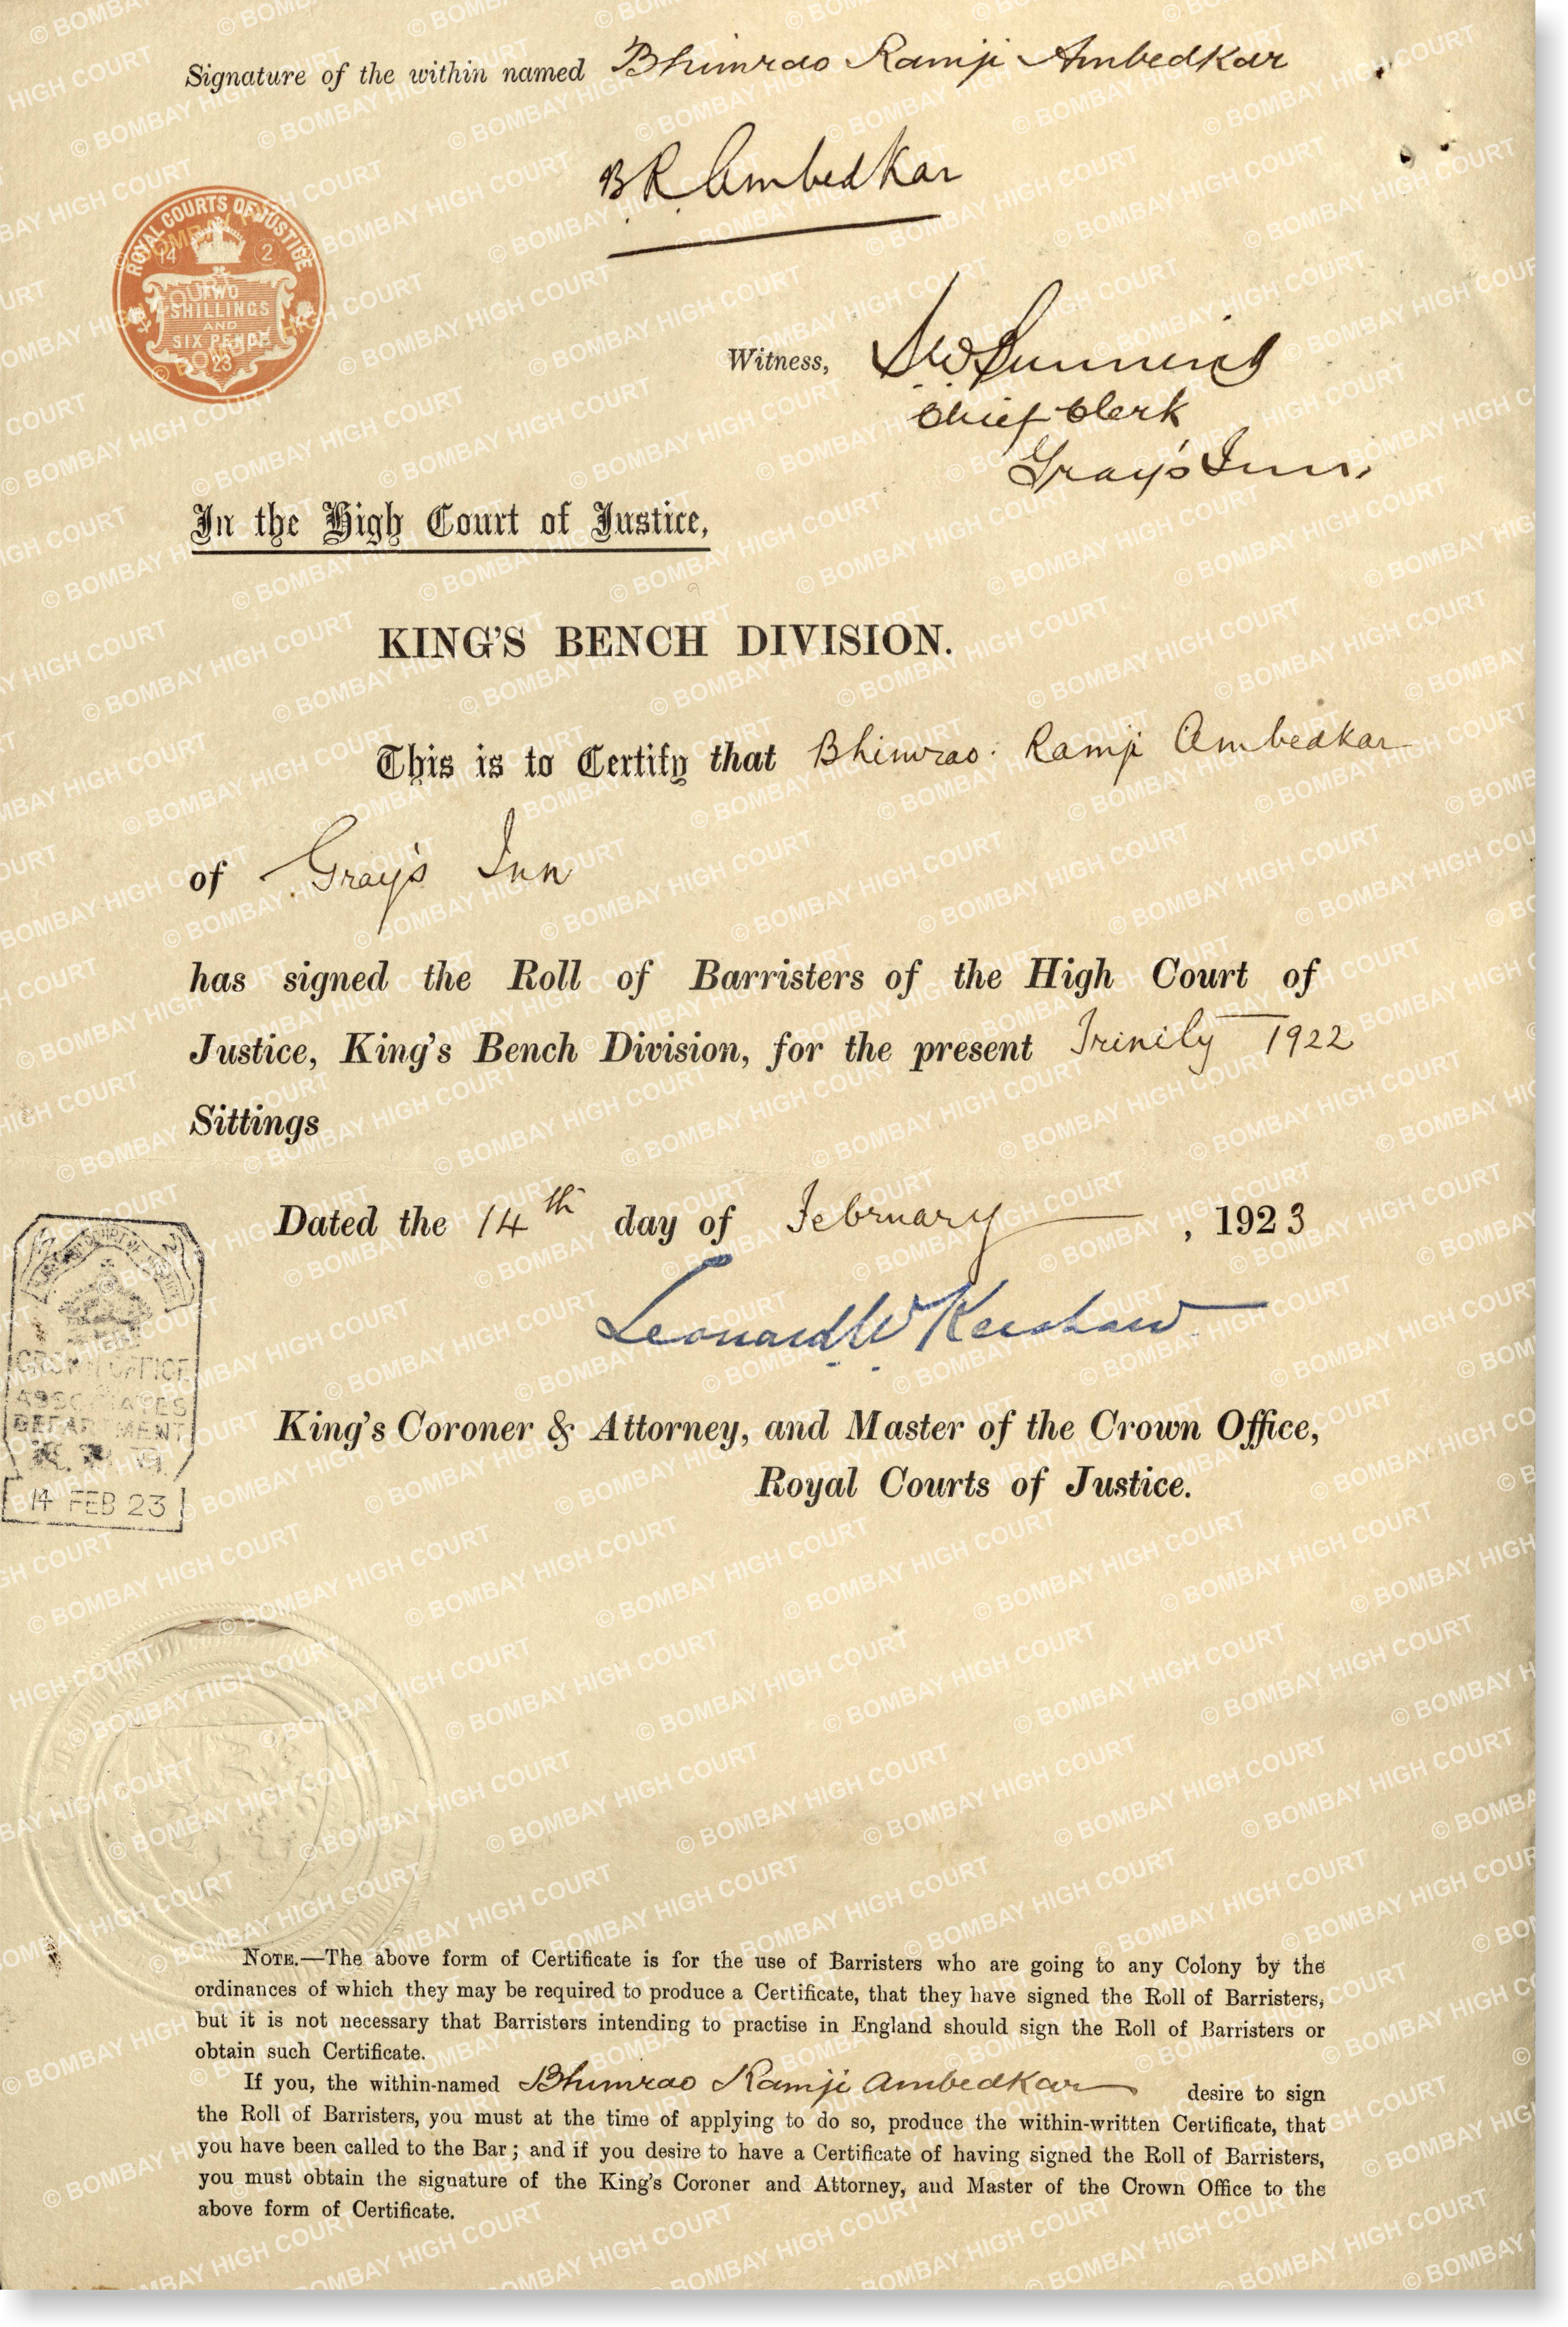 Signature of the within named Bhimrao Ramji Ambedkar
B.R. Ambedkar
ROYAL COURTS OF JUSTICE
14 2
TWO
SHILLINGS
AND
SIX PENCE
23
Witness,
Chief Clerk
Gray's Inn.
In the High Court of Justice,
KING'S BENCH DIVISION.
This is to Certify that Bhimrao Ramji Ambedkar
of Gray's Inn
has signed the Roll of Barristers of the High Court of
Justice, King's Bench Division, for the present Trinity 1922
Sittings
Dated the 14th day of February, 1923
Leonard W Kershaw
CROWN OFFICE
ASSOCIATES
DEPARTMENT
14 FEB 23
King's Coroner & Attorney, and Master of the Crown Office,
Royal Courts of Justice.
NOTE.—The above form of Certificate is for the use of Barristers who are going to any Colony by the
ordinances of which they may be required to produce a Certificate, that they have signed the Roll of Barristers,
but it is not necessary that Barristers intending to practise in England should sign the Roll of Barristers or
obtain such Certificate.
If you, the within-named Bhimrao Ramji Ambedkar desire to sign
the Roll of Barristers, you must at the time of applying to do so, produce the within-written Certificate, that
you have been called to the Bar; and if you desire to have a Certificate of having signed the Roll of Barristers,
you must obtain the signature of the King's Coroner and Attorney, and Master of the Crown Office to the
above form of Certificate.
© BOMBAY HIGH COURT